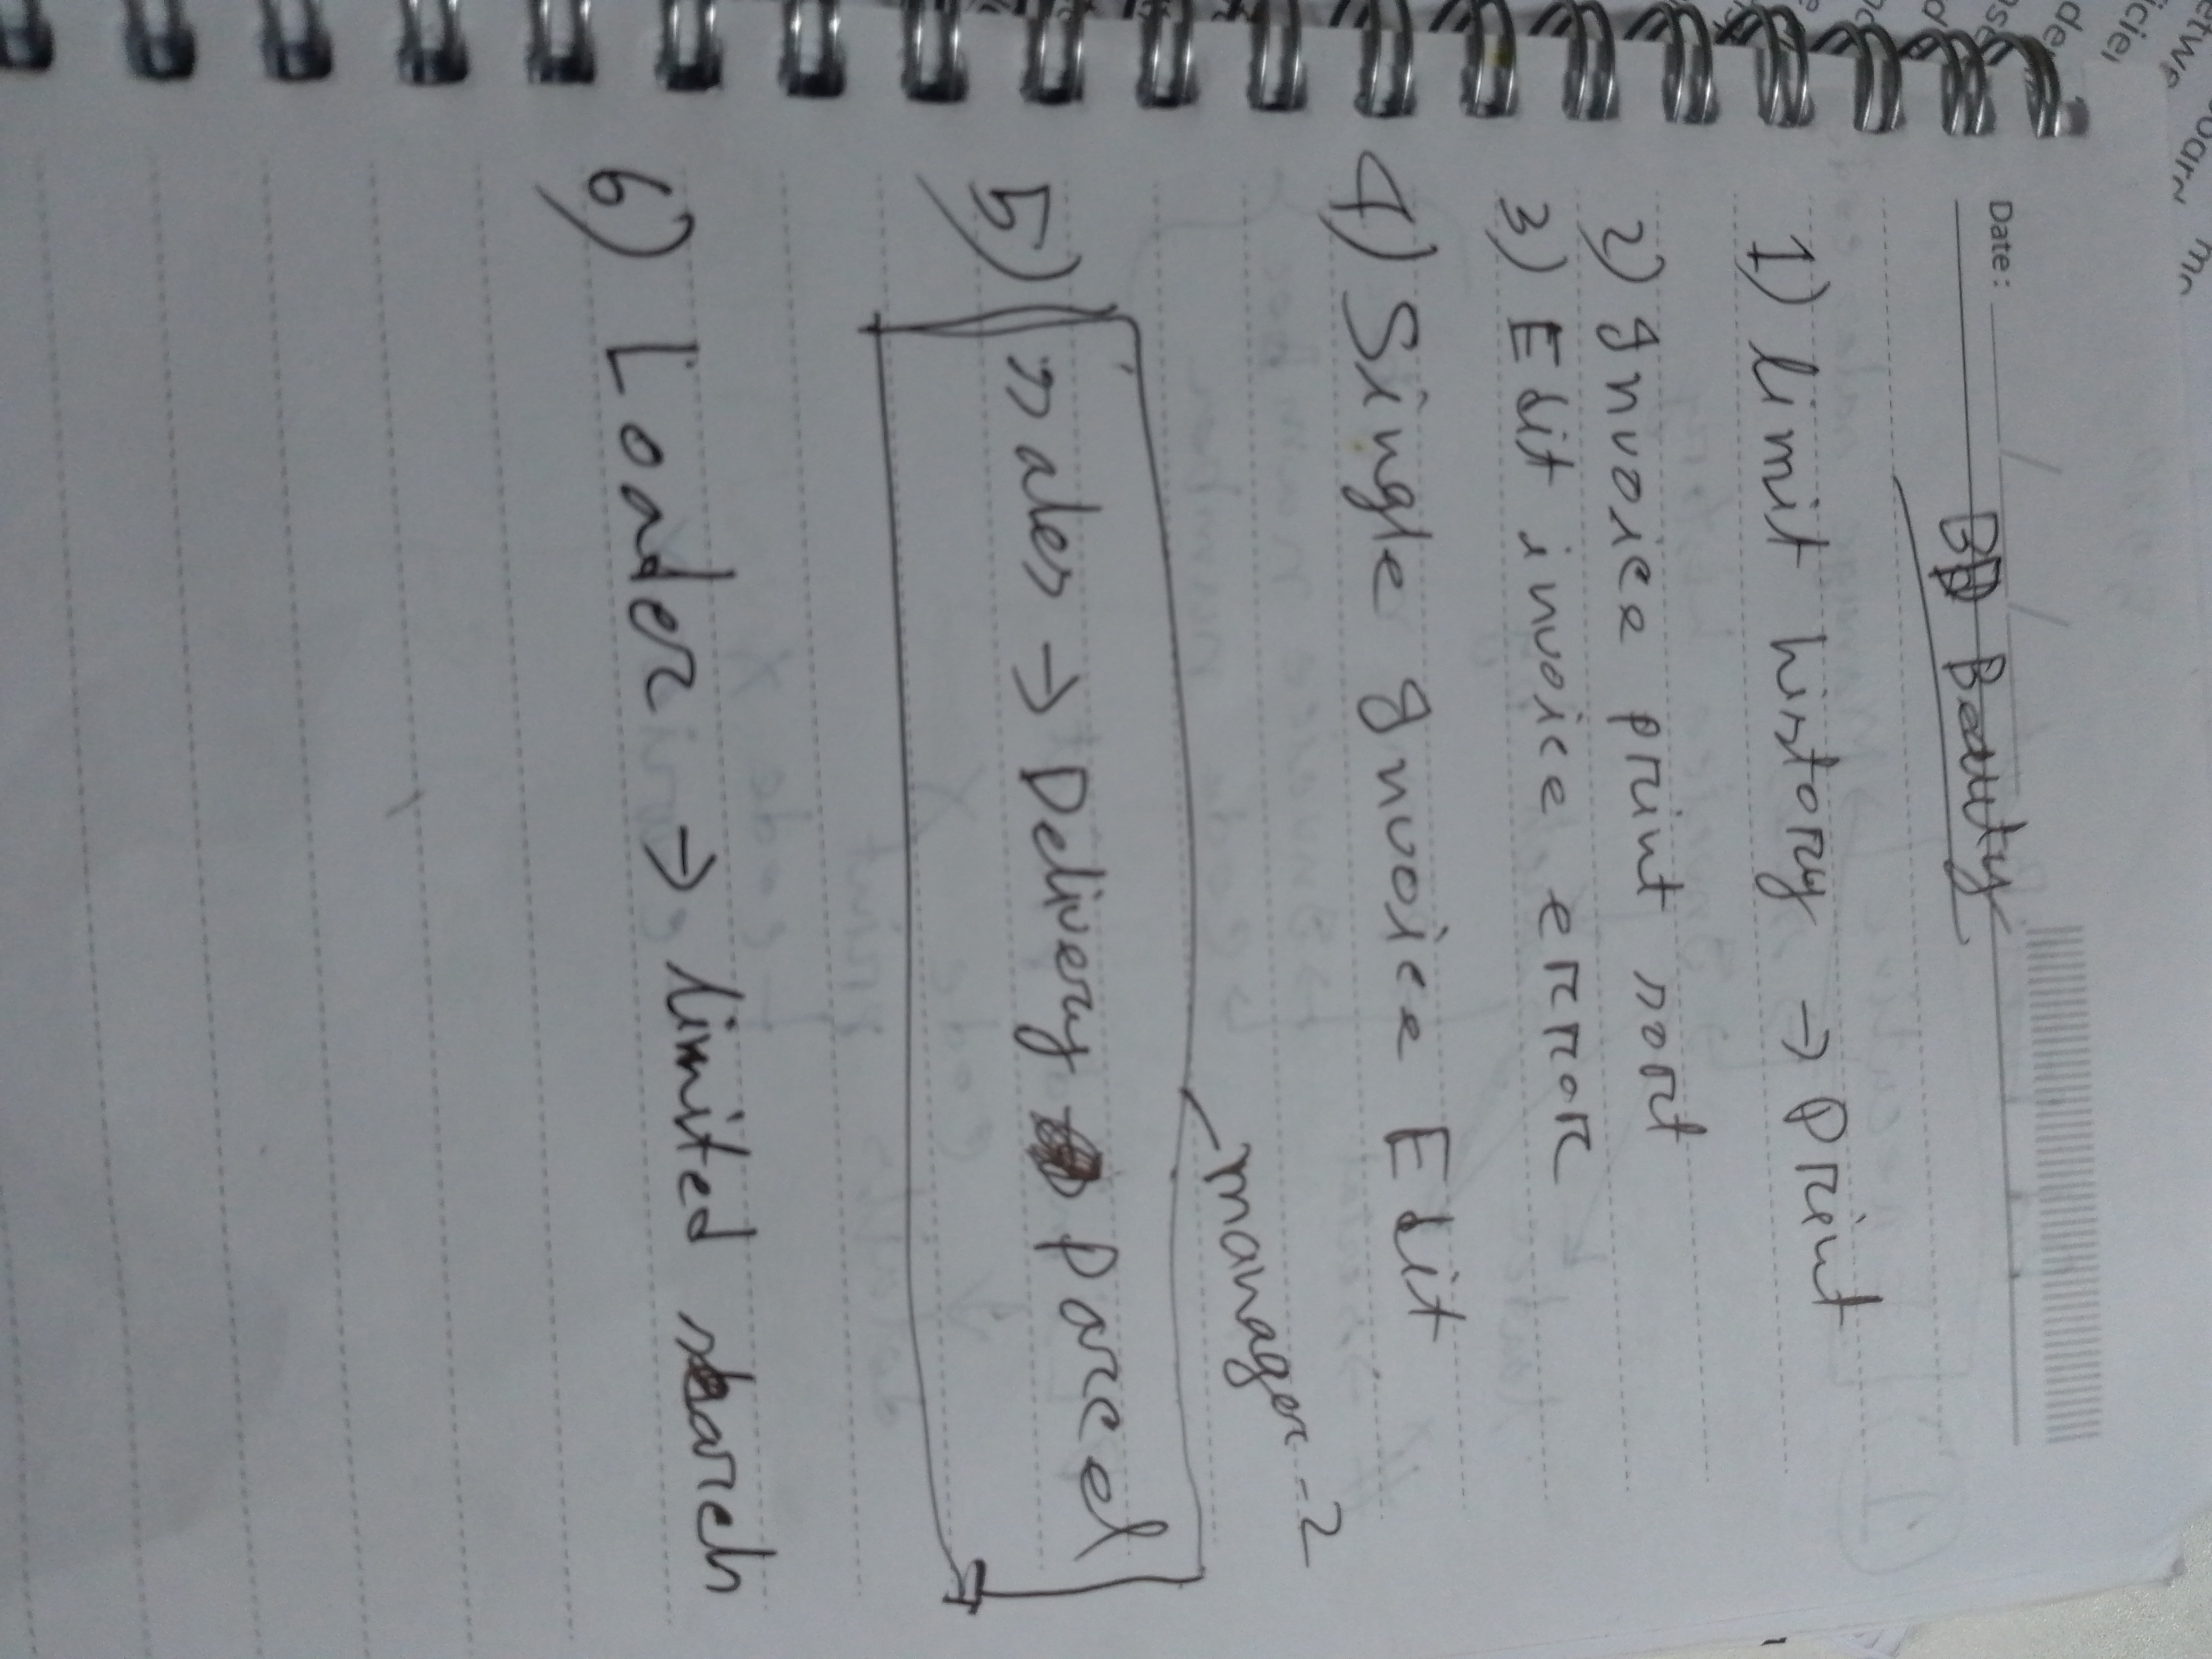 Date:
BD Beauty
1) limit history → print
2) Invoice print sort
3) Edit invoice error
4) Single Invoice Edit
manager-2
5) sales → Delivery Parcel
6) Loader → limited search